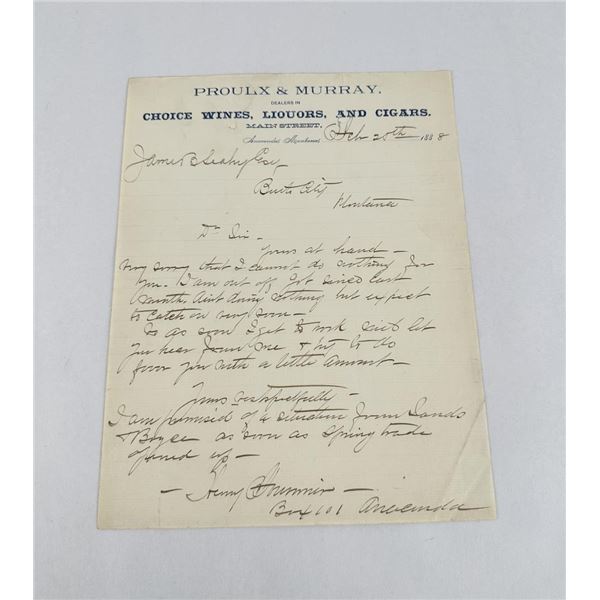 PROULX & MURRAY.
DEALERS IN
CHOICE WINES, LIQUORS, AND CIGARS.
MAIN STREET,
Anaconda, Montana, Feb 20th 1888
James B Leahy Esq,
Butte City
Montana
Dr Sir -
Yours at hand -
Very sorry that I cannot do nothing for
you. I am out of Job since last
month. Aint doing nothing but expect
to catch on very soon -
So as soon I get to work will let
you hear from me & try to do
favor you with a little amount -
Yours respectfully -
I am promised of a situation from Sands
& Boyce as soon as Spring trade
opened up -
- Henry -
Box 101 Anaconda